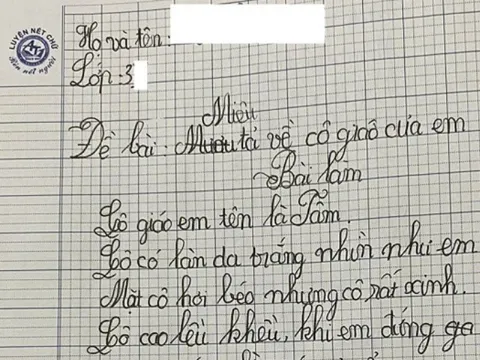 LUYỆN NÉT CHỮ
Rèn nết người
Họ và tên:
Lớp: 3
Miêu
Đề bài: tả về cô giáo của em
Bài làm
Cô giáo em tên là Tâm.
Cô có làn da trắng nhìn như em
Mặt cô hơi béo nhưng cô rất xinh.
Cô cao lêu khêu, khi em đứng ga